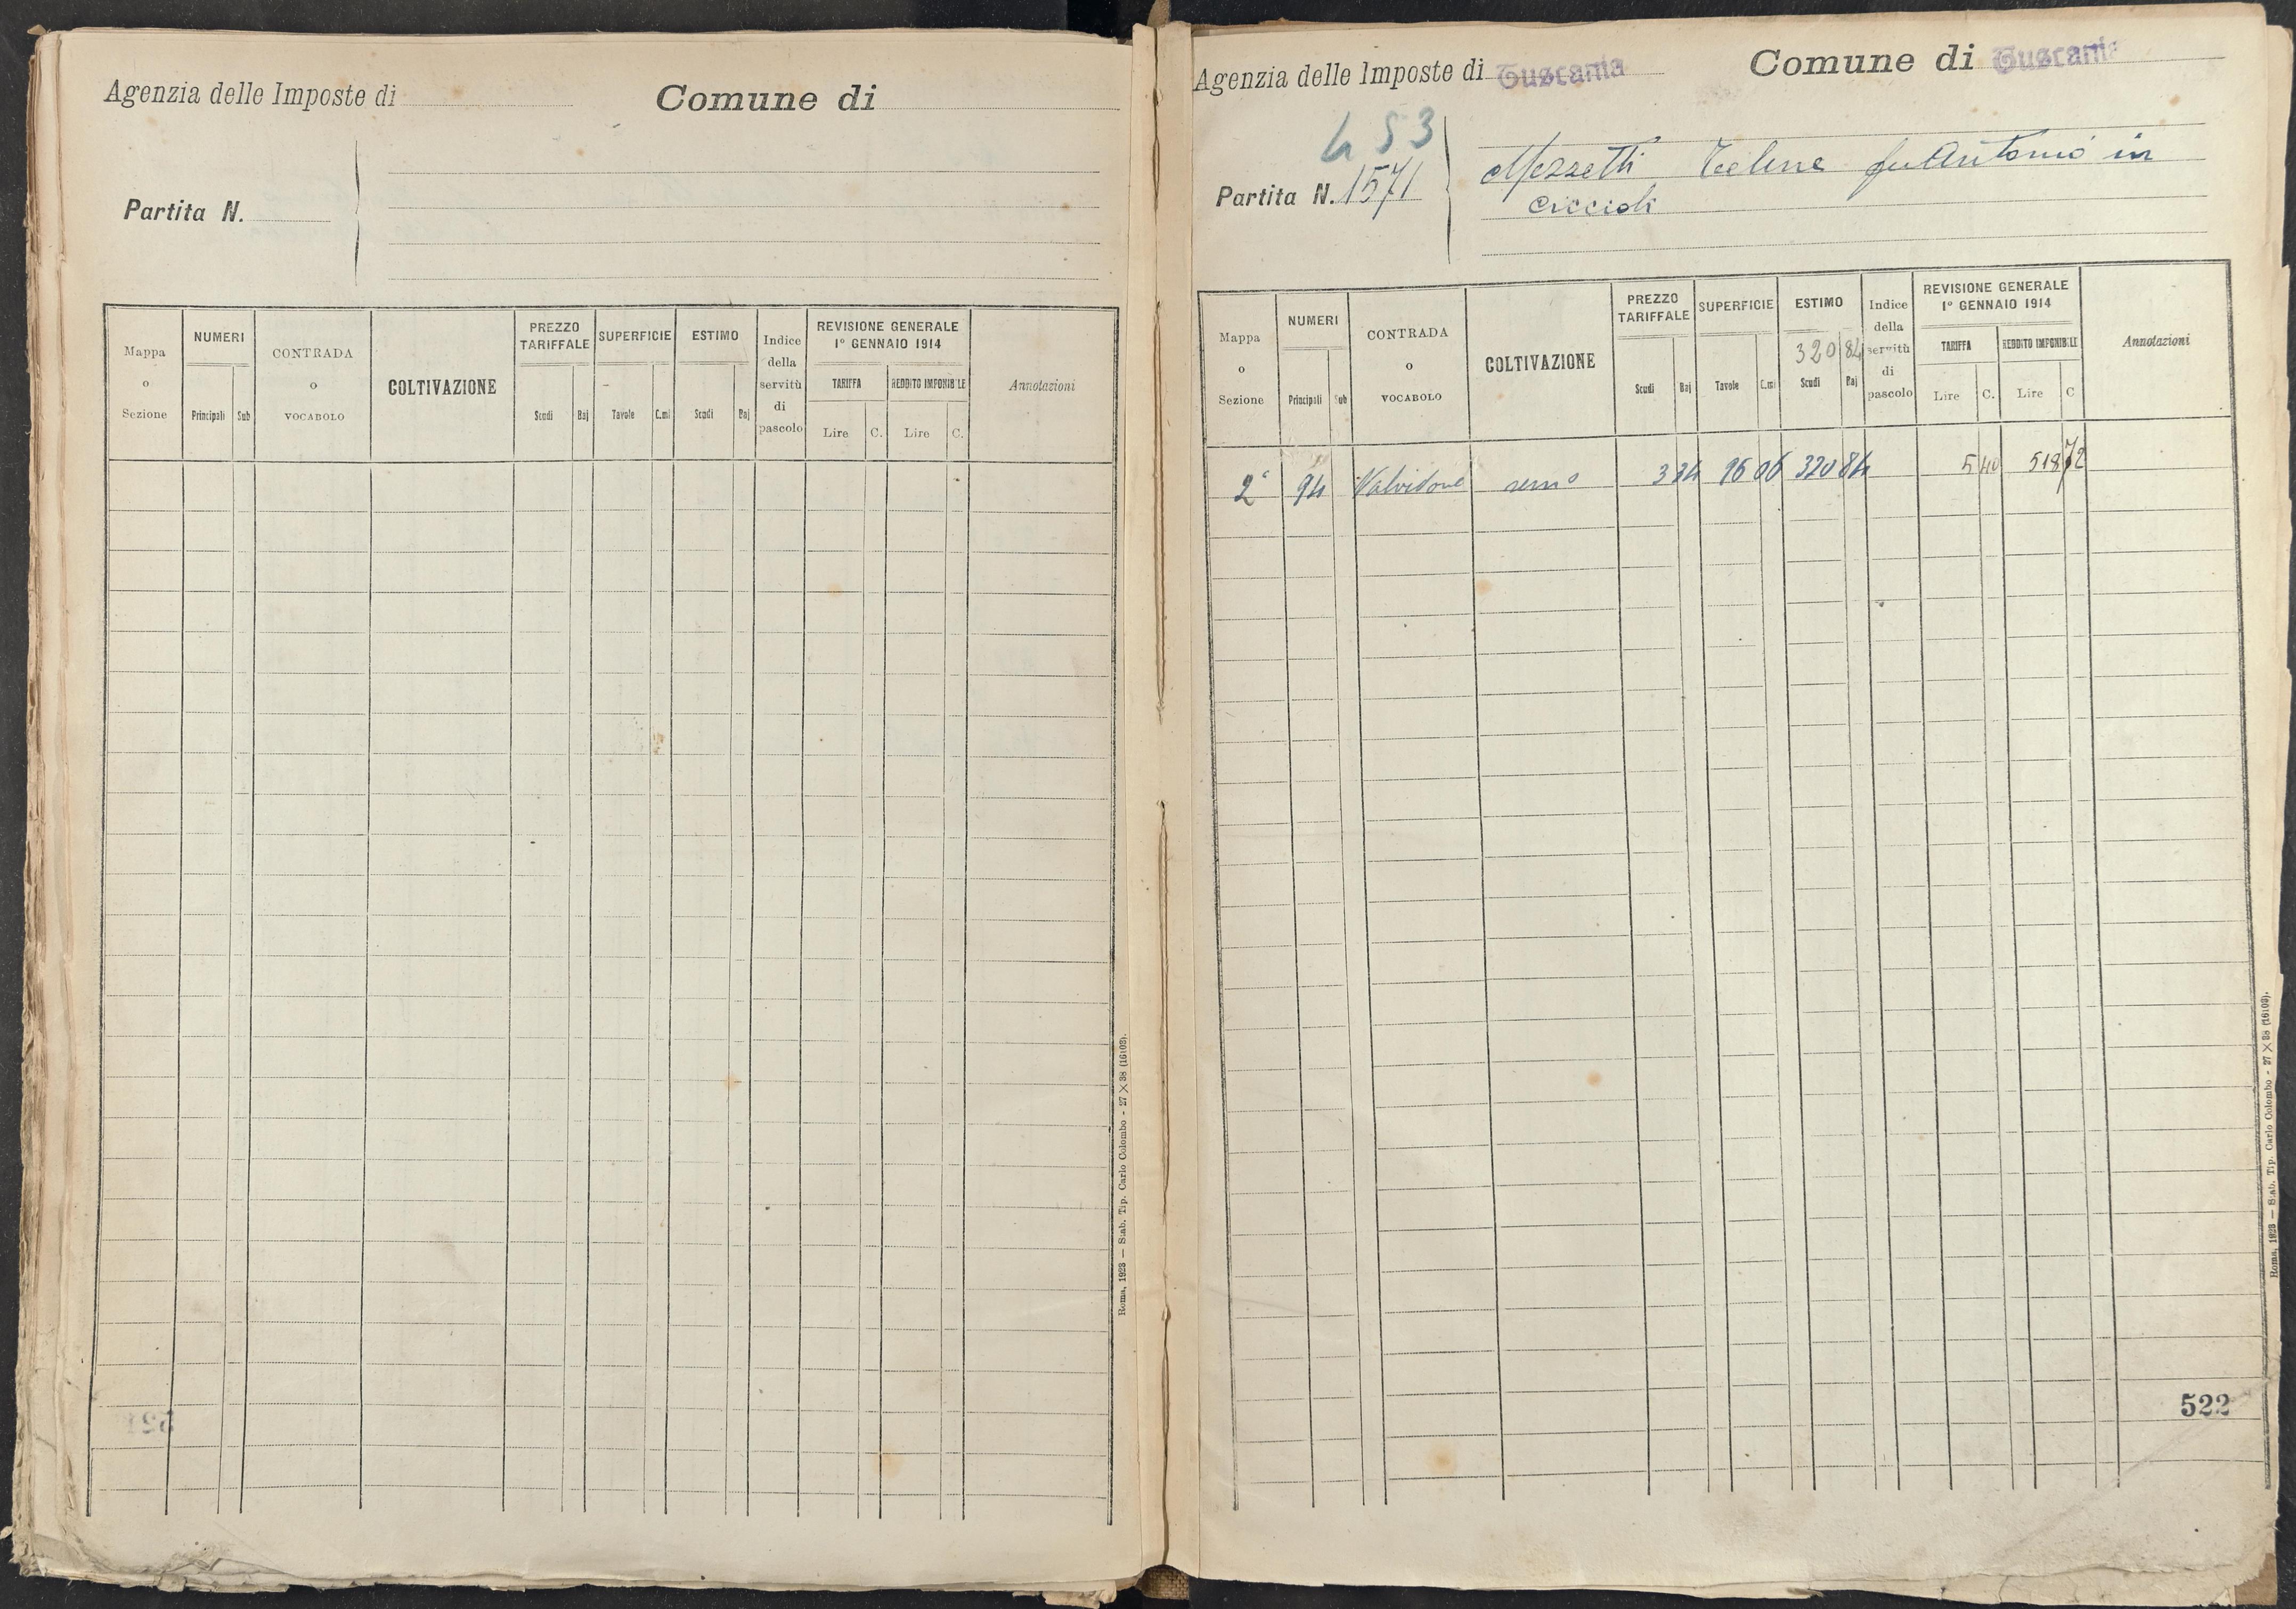 Agenzia delle Imposte di
Comune di
Partita N.
Mappa o Sezione
NUMERI
Principali Sub
CONTRADA o VOCABOLO
COLTIVAZIONE
PREZZO TARIFFALE
Scudi Baj
SUPERFICIE
Tavole C.mi
ESTIMO
Scudi Baj
Indice della servitù di pascolo
REVISIONE GENERALE
1º GENNAIO 1914
TARIFFA
Lire C.
REDDITO IMPONIBILE
Lire C.
Annotazioni
Roma, 1923 — Stab. Tip. Carlo Colombo - 27 × 38 (16103).
Agenzia delle Imposte di Tuscania
Comune di Tuscania
453
Partita N. 1571
Mezzetti fu Antonio in
Ciccioli
Mappa o Sezione
NUMERI
Principali Sub
CONTRADA o VOCABOLO
COLTIVAZIONE
PREZZO TARIFFALE
Scudi Baj
SUPERFICIE
Tavole C.mi
ESTIMO
320 84
Scudi Baj
Indice della servitù di pascolo
REVISIONE GENERALE
1º GENNAIO 1914
TARIFFA
Lire C.
REDDITO IMPONIBILE
Lire C
Annotazioni
2ª 94 Valvidone 3 34 96 06 320 84 5 40 518 72
522
Roma, 1923 — Stab. Tip. Carlo Colombo - 27 × 38 (16103).